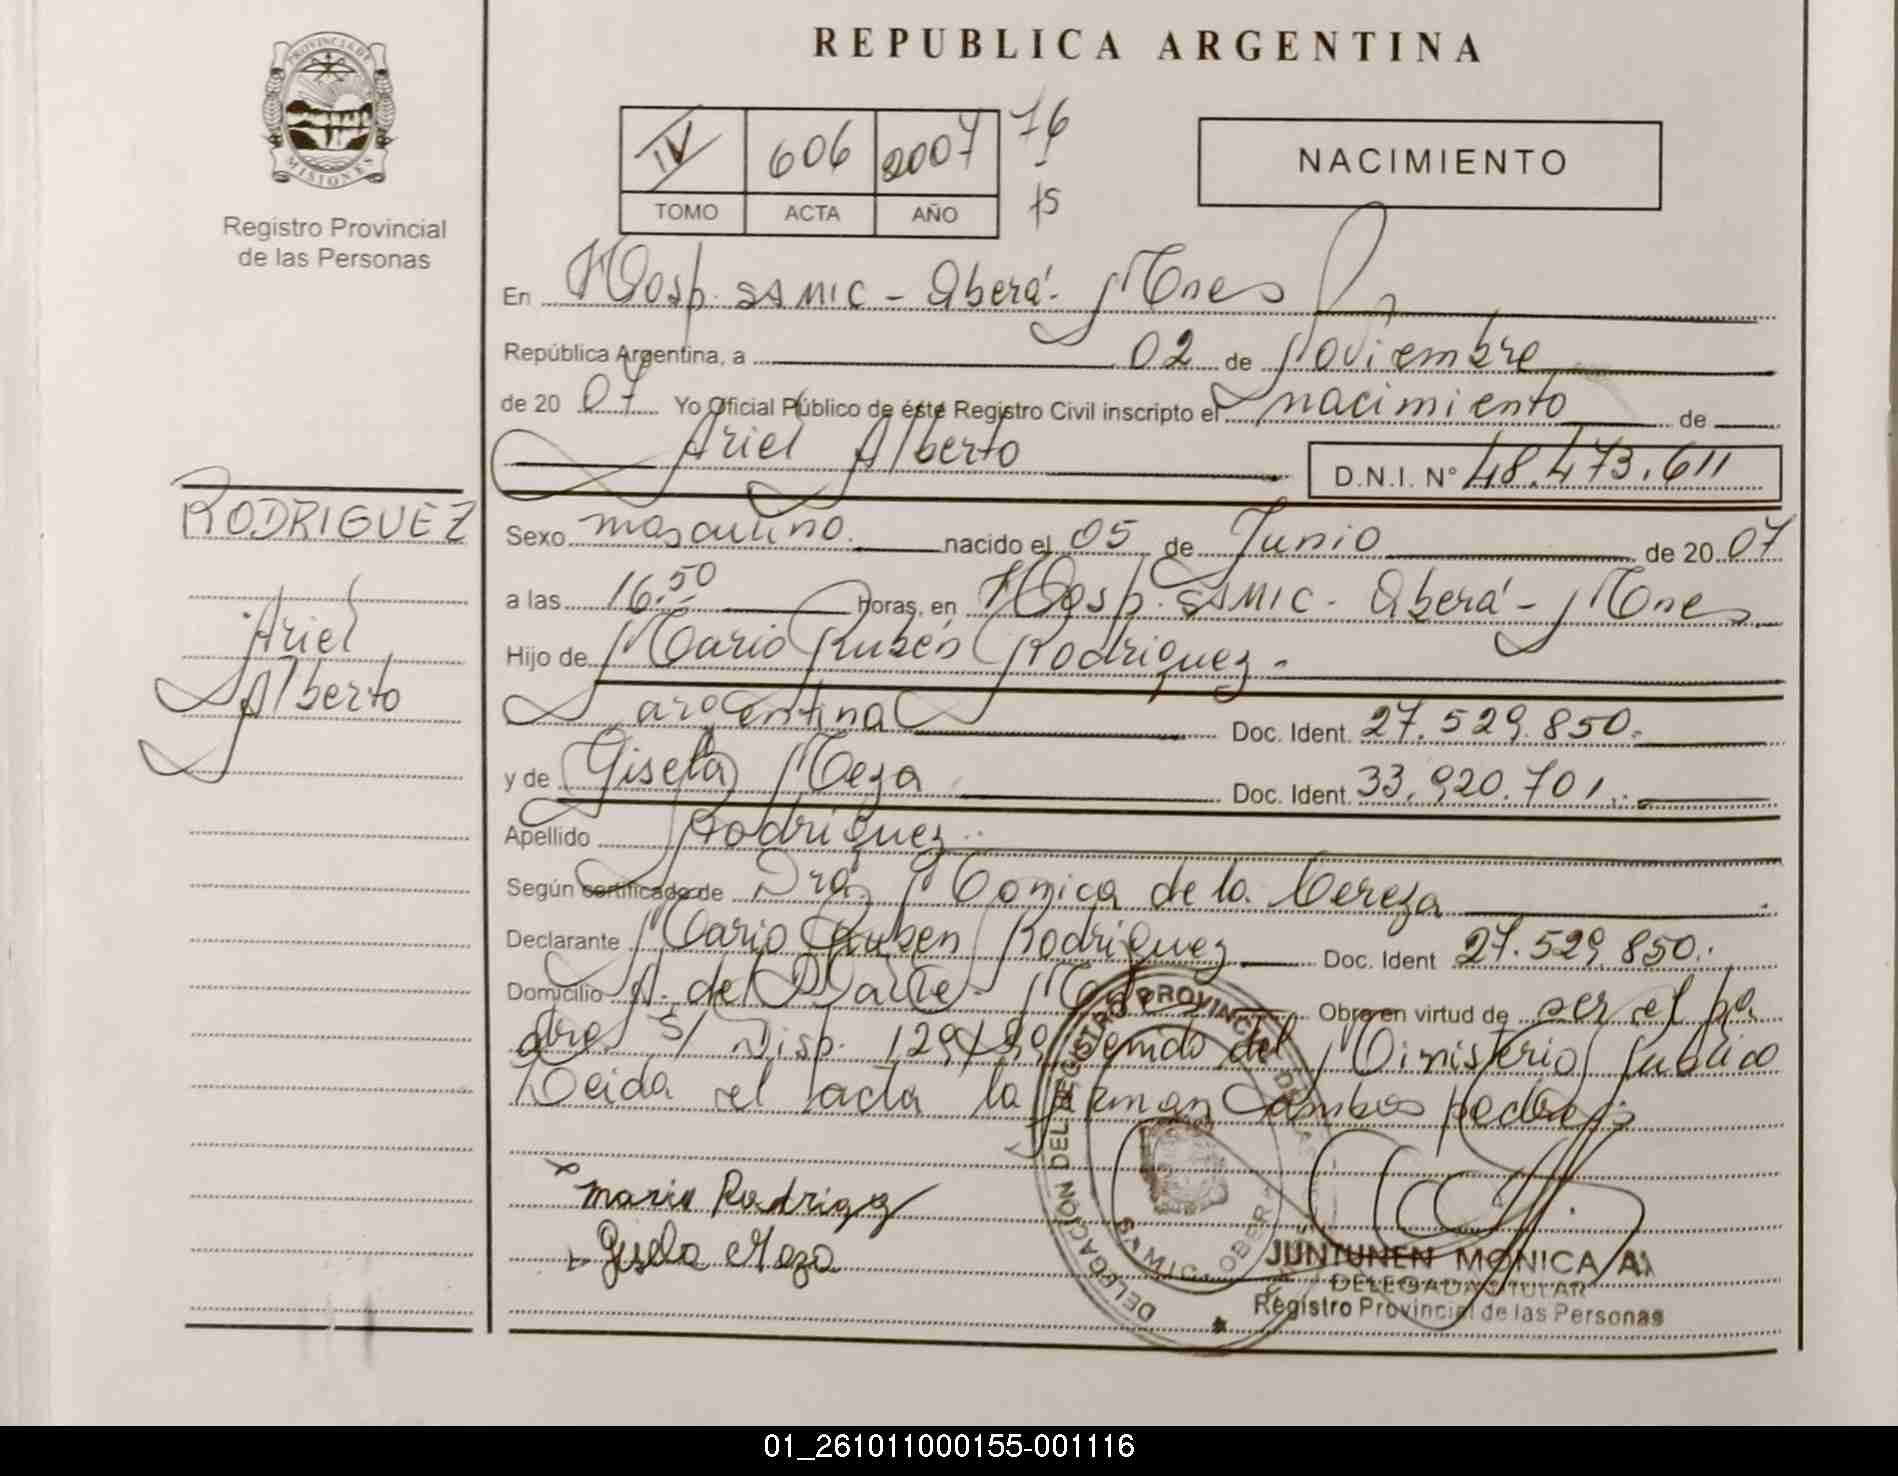 PROVINCIA DE
MISIONES
Registro Provincial
de las Personas
RODRIGUEZ
Ariel
Alberto
REPUBLICA ARGENTINA
IV 606 2007 76
TOMO ACTA AÑO 15
NACIMIENTO
En Hosp. SAMIC - Oberá - Mnes
República Argentina, a 02 de Noviembre
de 2007 Yo Oficial Público de éste Registro Civil inscripto el nacimiento de
Ariel Alberto D.N.I. N° 48.473.611
Sexo masculino. nacido el 05 de Junio de 2007
a las 16.50 Horas, en Hosp. SAMIC - Oberá - Mnes
Hijo de Mario Rubén Rodriguez -
argentina Doc. Ident. 27.529.850.
y de Gisela Meza Doc. Ident. 33.920.701.
Apellido Rodriguez
Según certificado de Dra. Monica de la Cereza
Declarante Mario Ruben Rodriguez Doc. Ident 27.529.850.
Domicilio A. del Valle - Obra en virtud de ser el pa
dre S/ Disp. 129/89 del Ministerio Publico
Leida el acta la firman ambos padres
Mario Rodrigz
Gisela Meza
DELEGACIÓN DEL REGISTRO PROVINCIAL DE LAS
SAMIC - OBERA
JUNTUNEN MONICA A.
DELEGADA TITULAR
Registro Provincial de las Personas
01_261011000155-001116